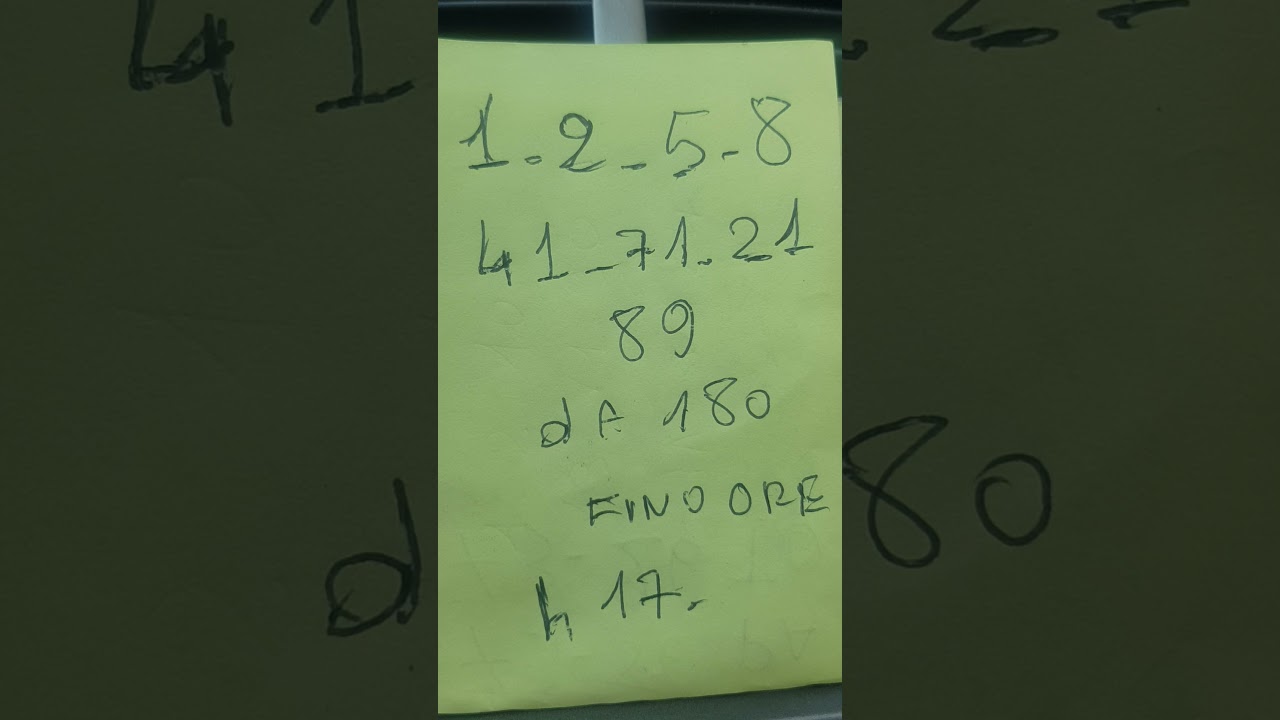 1.2-5-8
41-71.21
89
dA 180
FINO ORE
h 17.